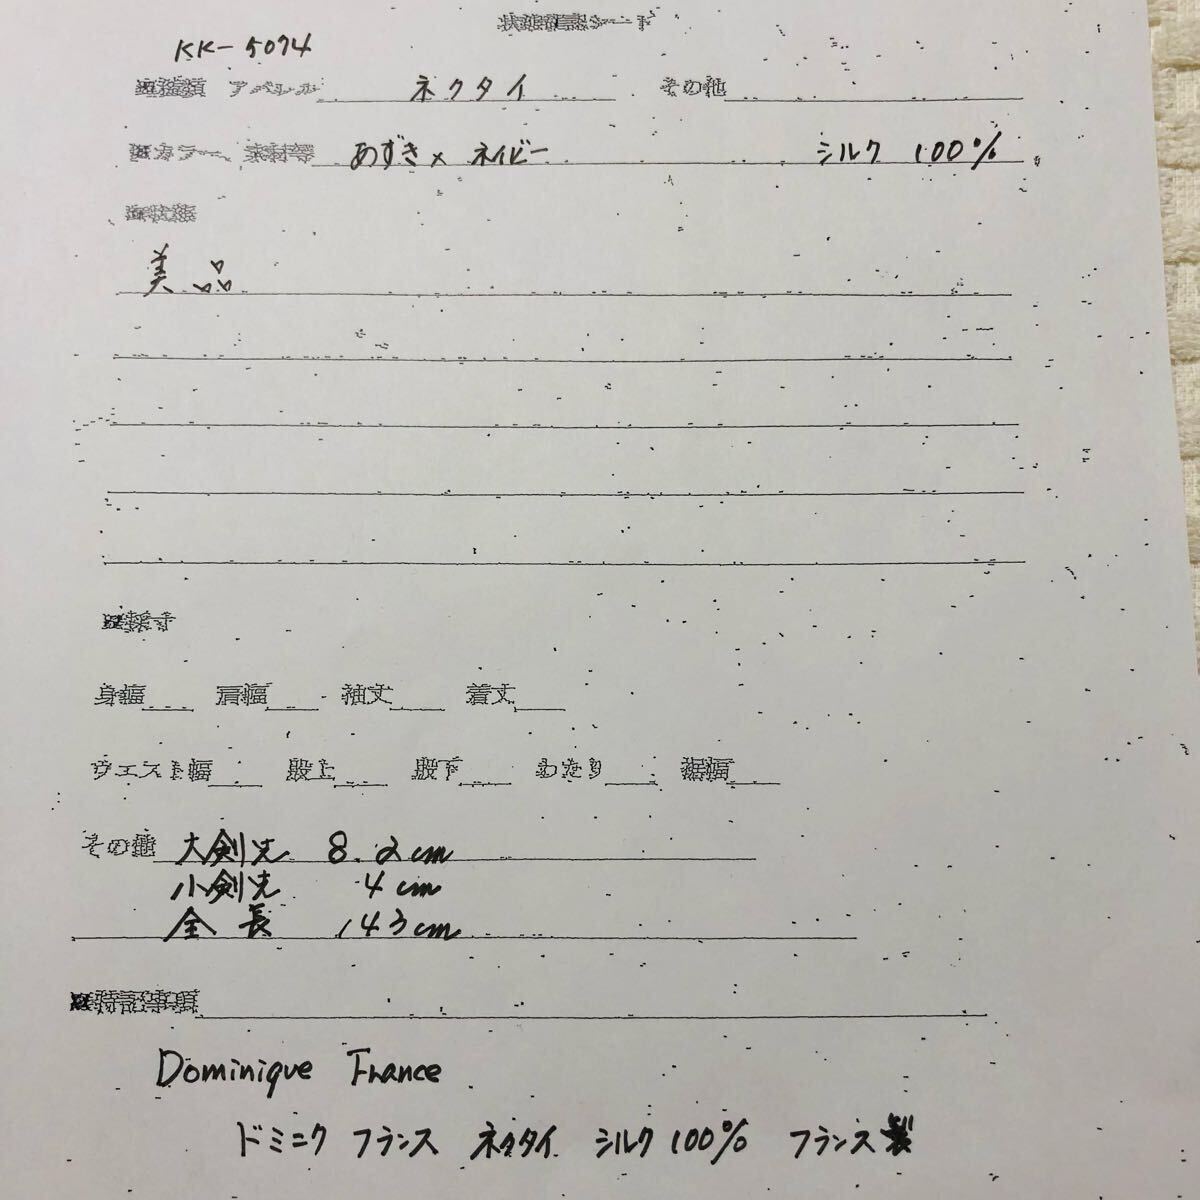 状態確認シート
KK-5074
☑種類 アパレル ネクタイ その他
☑カラー、素材等 あずき×ネイビー シルク 100%
☑状態
美品
☑採寸
身幅 肩幅 袖丈 着丈
ウエスト幅 股上 股下 わたり 裾幅
その他 大剣先 8.2cm
小剣先 4cm
全長 143cm
☑特記事項
Dominique France
ドミニク フランス ネクタイ シルク100% フランス製